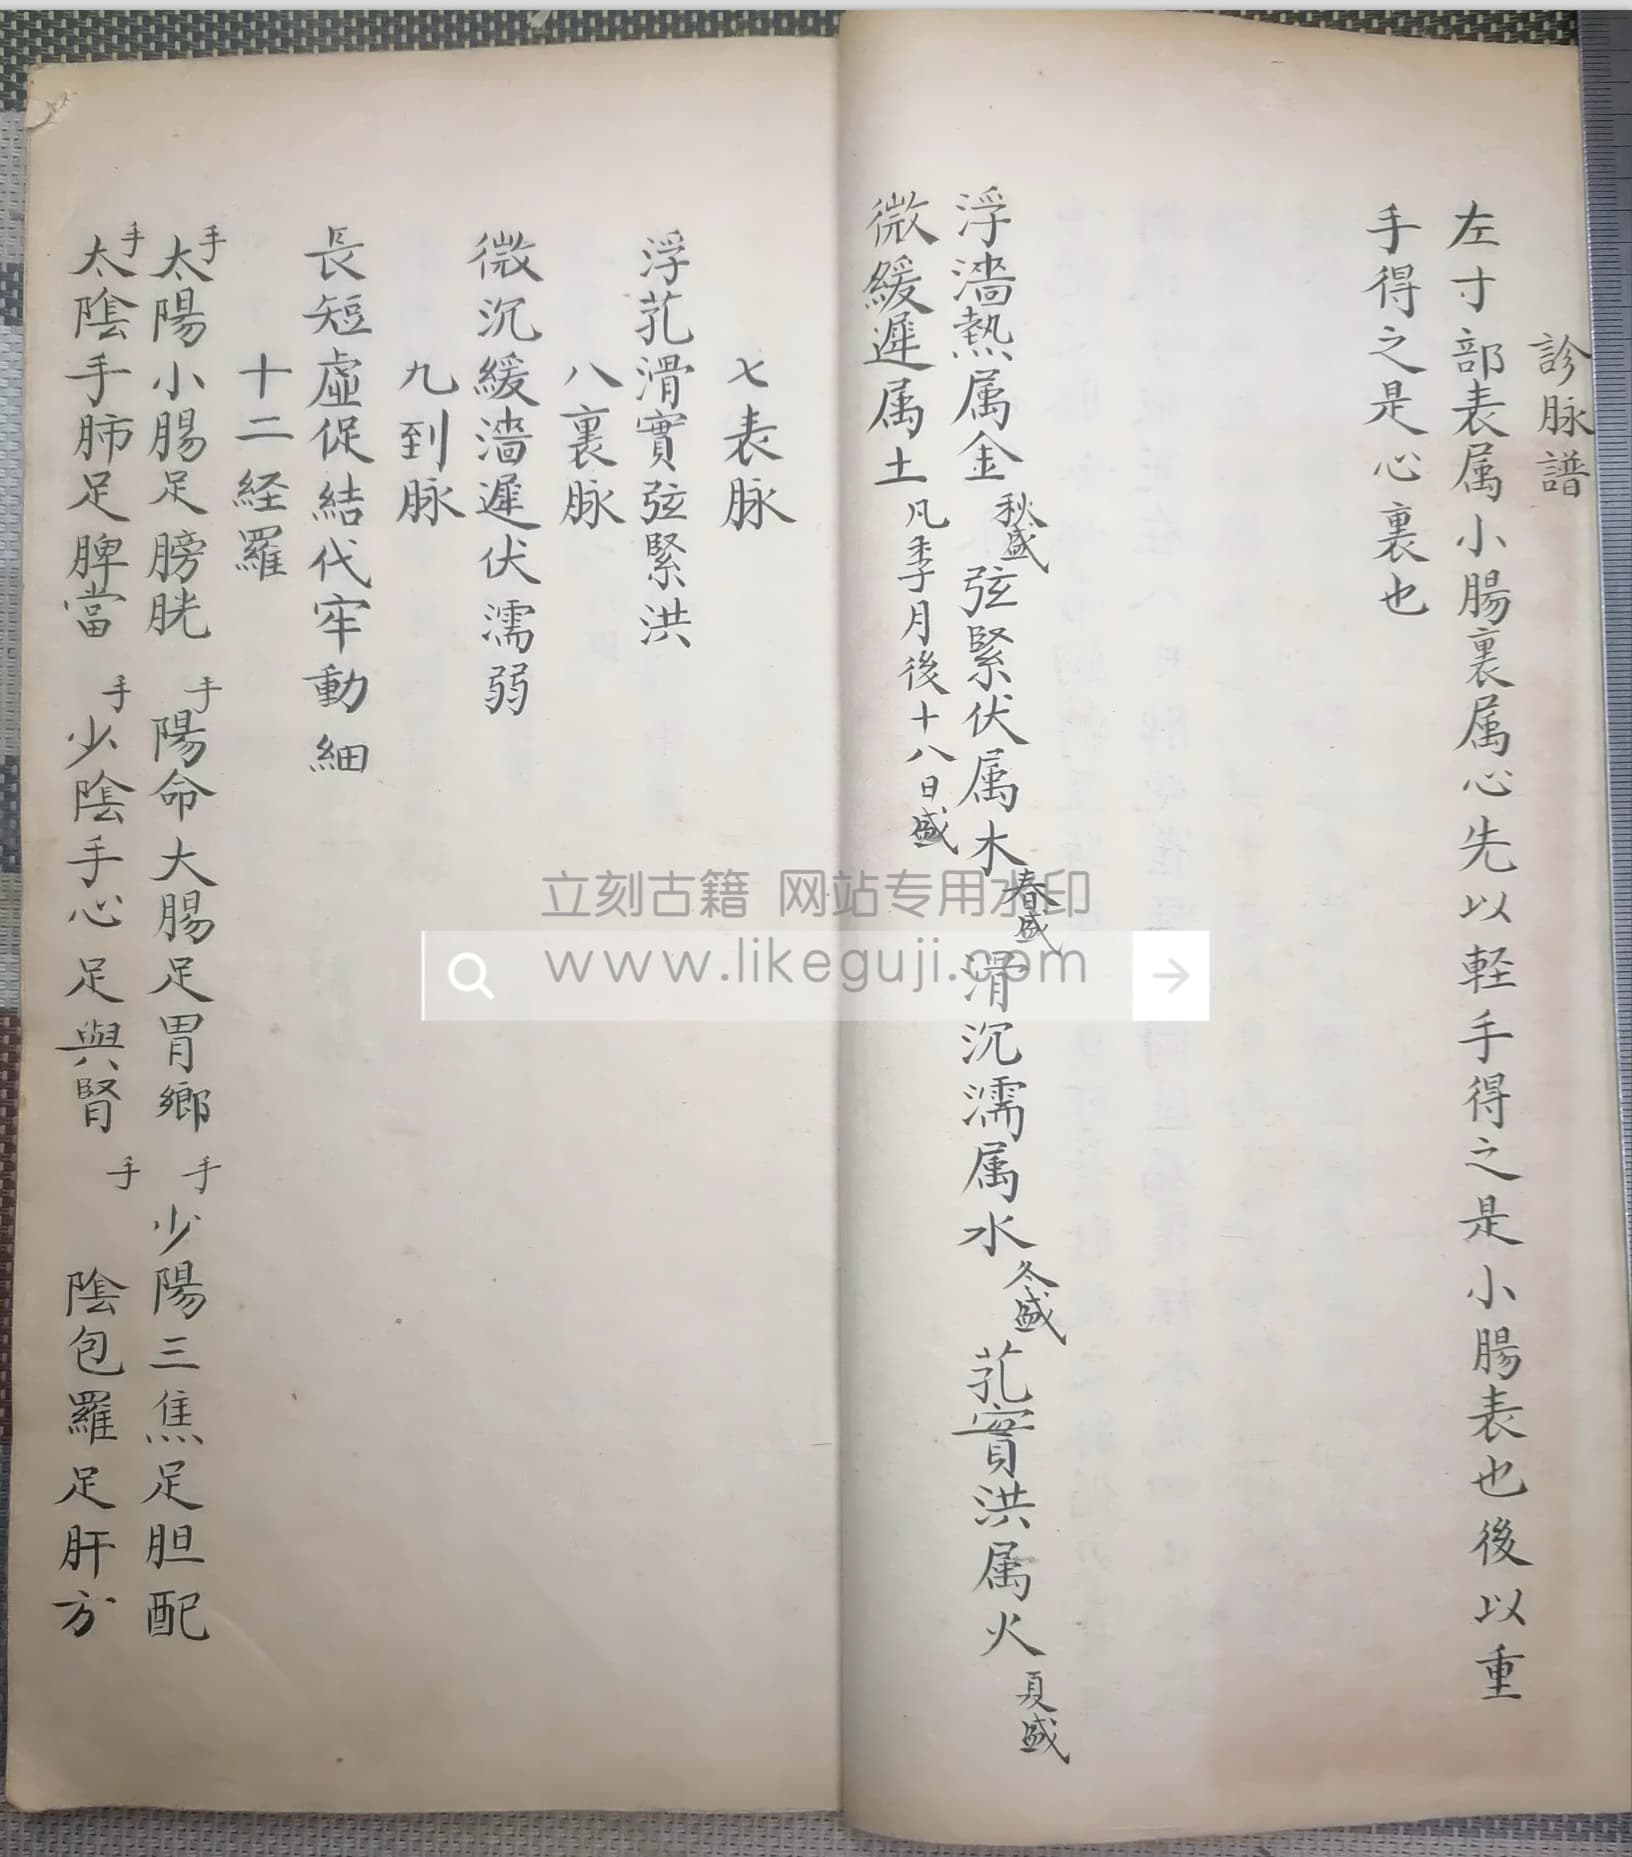 診脉譜
左寸部表属小腸裏属心先以軽手得之是小腸表也後以重
手得之是心裏也
浮濇熱属金秋盛弦緊伏属木春盛滑沉濡属水冬盛芤實洪属火夏盛
微緩遲属土凡季月後十八日盛
七表脉
浮芤滑實弦緊洪
八裏脉
微沉緩濇遲伏濡弱
九到脉
長短虛促結代牢動細
十二経羅
手太陽小腸足膀胱手陽命大腸足胃鄉手少陽三焦足胆配
手太陰手肺足脾當手少陰手心足與腎手陰包羅足肝方
立刻古籍 网站专用水印
www.likeguji.com